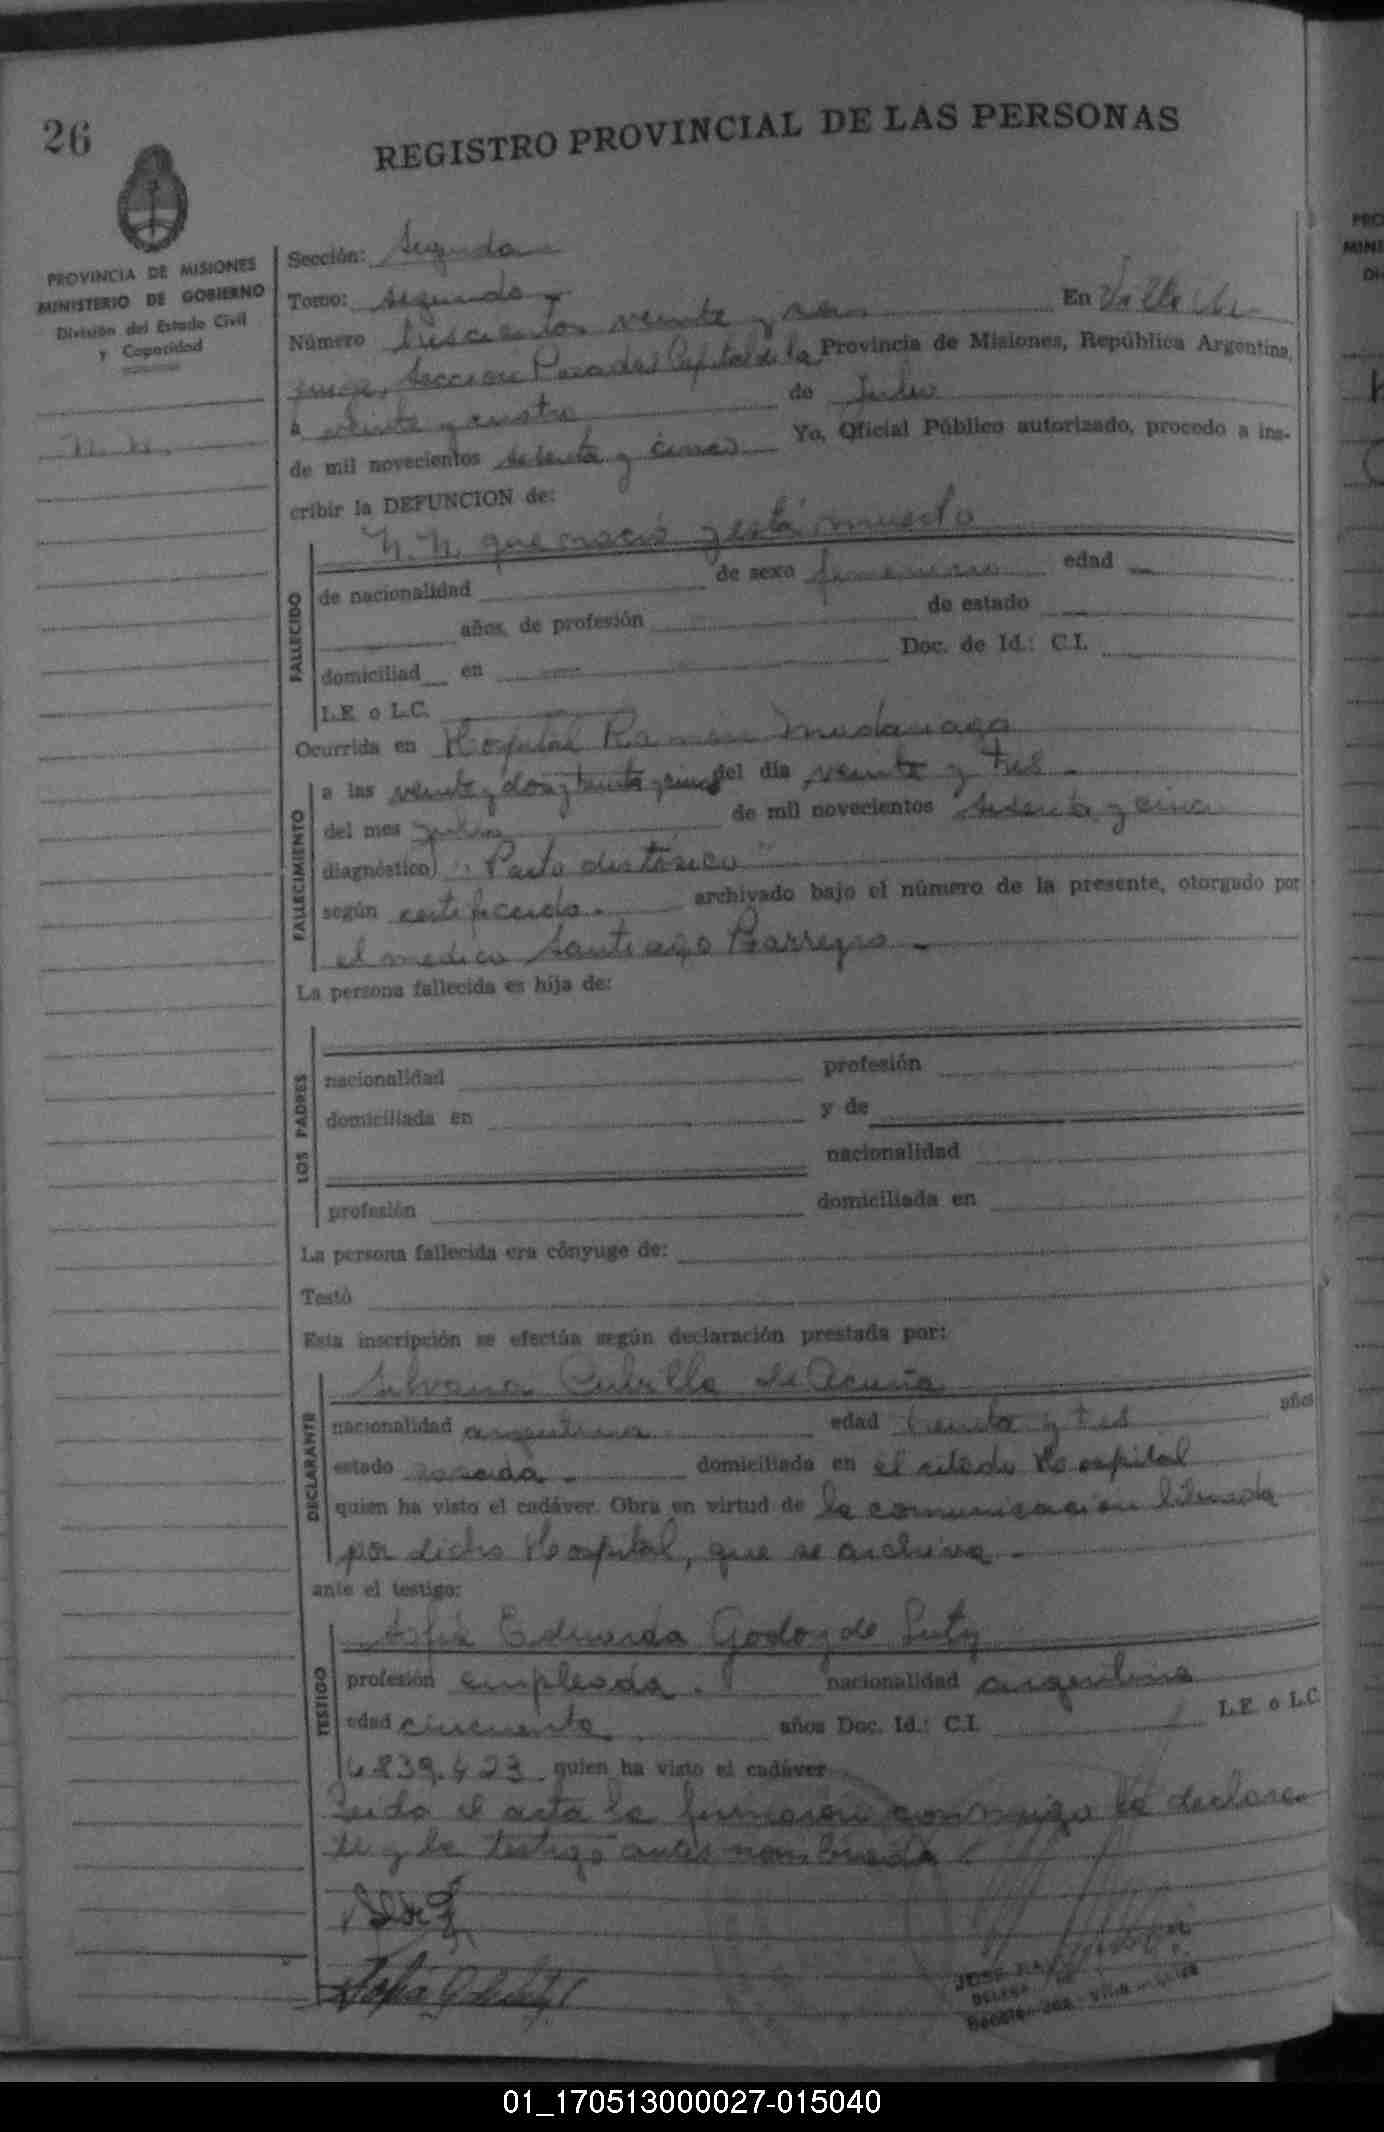 26
REGISTRO PROVINCIAL DE LAS PERSONAS
PROVINCIA DE MISIONES
MINISTERIO DE GOBIERNO
División del Estado Civil
y Capacidad
N. N.
Sección: Segunda
Tomo: Segundo
Número trescientos veinte y seis En Villa Ur-
quiza, Sección Posadas Capital de la Provincia de Misiones, República Argentina,
a veinte y cuatro de Julio
de mil novecientos setenta y cinco Yo, Oficial Público autorizado, procedo a ins-
cribir la DEFUNCION de:
N. N. que nació y está muerto
FALLECIDO
de nacionalidad de sexo femenino edad
años, de profesión de estado
domiciliad en Doc. de Id.: C.I.
L.E. o L.C.
Ocurrida en Hospital Ramón Madariaga
FALLECIMIENTO
a las veinte y dos y treinta y cinco del día veinte y tres
del mes Julio de mil novecientos setenta y cinco
diagnóstico) "Parto distósico"
según certificado. archivado bajo el número de la presente, otorgado por
el medico Santiago Barreyro
La persona fallecida es hija de:
LOS PADRES
nacionalidad profesión
domiciliada en y de
nacionalidad
profesión domiciliada en
La persona fallecida era cónyuge de:
Testó
Esta inscripción se efectúa según declaración prestada por:
Silvana Cubilla de Acuña
DECLARANTE
nacionalidad argentina edad treinta y tres años
estado casada. domiciliada en el citado Hospital
quien ha visto el cadáver. Obra en virtud de la comunicación librada
por dicho Hospital, que se archiva.
ante el testigo:
Sofia Eduarda Godoy de
TESTIGO
profesión empleada. nacionalidad argentina
edad cincuenta años Doc. Id.: C.I. L.E. o L.C.
4.839.423 quien ha visto el cadáver
Leida el acta la firmaron conmigo la declaran-
te y la testigo antes nombrada.
JOSE
01_170513000027-015040